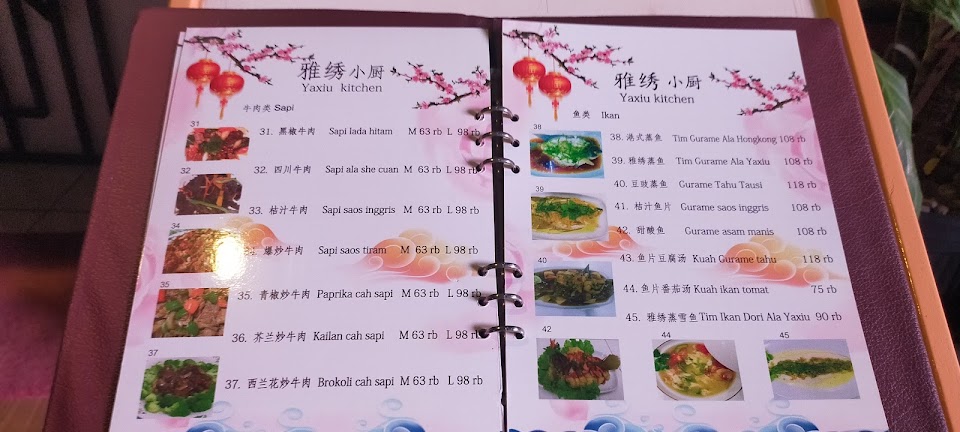 雅绣小厨
Yaxiu kitchen
牛肉类 Sapi
31
31. 黑椒牛肉 Sapi lada hitam M 63 rb L 98 rb
32
32. 四川牛肉 Sapi ala she cuan M 63 rb L 98 rb
33. 桔汁牛肉 Sapi saos inggris M 63 rb L 98 rb
34
34. 爆炒牛肉 Sapi saos tiram M 63 rb L 98 rb
35
35. 青椒炒牛肉 Paprika cah sapi M 63 rb L 98 rb
36
36. 芥兰炒牛肉 Kailan cah sapi M 63 rb L 98 rb
37
37. 西兰花炒牛肉 Brokoli cah sapi M 63 rb L 98 rb
雅绣小厨
Yaxiu kitchen
鱼类 Ikan
38
38. 港式蒸鱼 Tim Gurame Ala Hongkong 108 rb
39. 雅绣蒸鱼 Tim Gurame Ala Yaxiu 108 rb
40. 豆豉蒸鱼 Gurame Tahu Tausi 118 rb
39
41. 桔汁鱼片 Gurame saos inggris 108 rb
42. 甜酸鱼 Gurame asam manis 108 rb
43. 鱼片豆腐汤 Kuah Gurame tahu 118 rb
40
44. 鱼片番茄汤 Kuah ikan tomat 75 rb
45. 雅绣蒸雪鱼 Tim Ikan Dori Ala Yaxiu 90 rb
42
44
45